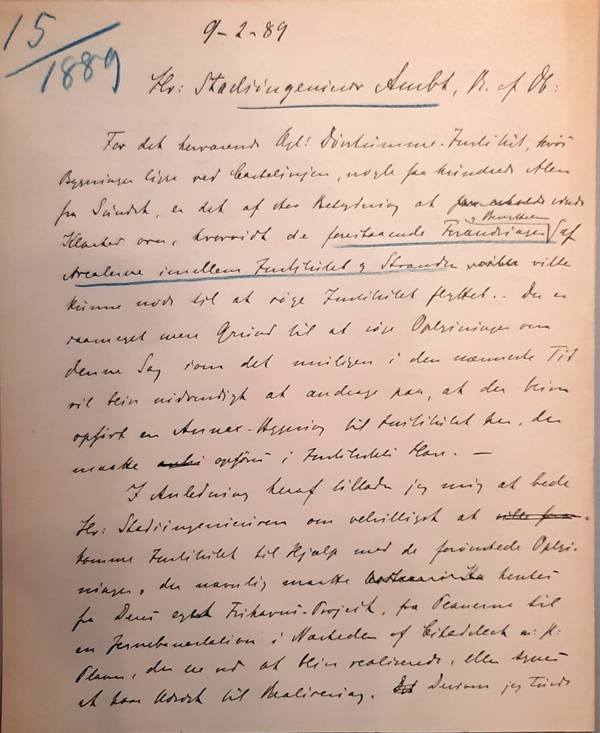 15/1889
9-2-89
Hr: Stadsingenieur Ambt, R. af Db:
For det herværende Kgl: Døvstumme-Institut, hvis
Bygninger ligge ved Castelsvejen, nogle faa hundrede Alen
fra Sundet, er det af stor Betydning at vinde
Klarhed over, hvorvidt de forestaaende Forandringer af
og Benyttelsen
Arealerne imellem Institutet og Stranden ville
kunne nøde til at søge Institutet flyttet. Der er
saameget mere Grund til at søge Oplysninger om
denne Sag som det muligen i den nærmeste Tid
vil blive nødvendigt at andrage paa, at der bliver
opført en Annex-Bygning til Institutet her, der
maatte opføres i Institutets Have. —
I Anledning heraf tillader jeg mig at bede
Hr: Stadsingenieuren om velvilligst at
komme Institutet til Hjælp med de fornødne Oplys-
ninger, der navnlig maatte hentes
fra Deres eget Frihavns-Project, fra Planerne til
en Jernbanestation i Nærheden af Citadellet m: fl:
Planer, der ere ved at blive realiserede, eller synes
at have Udsigt til Realisering. Dersom jeg turde